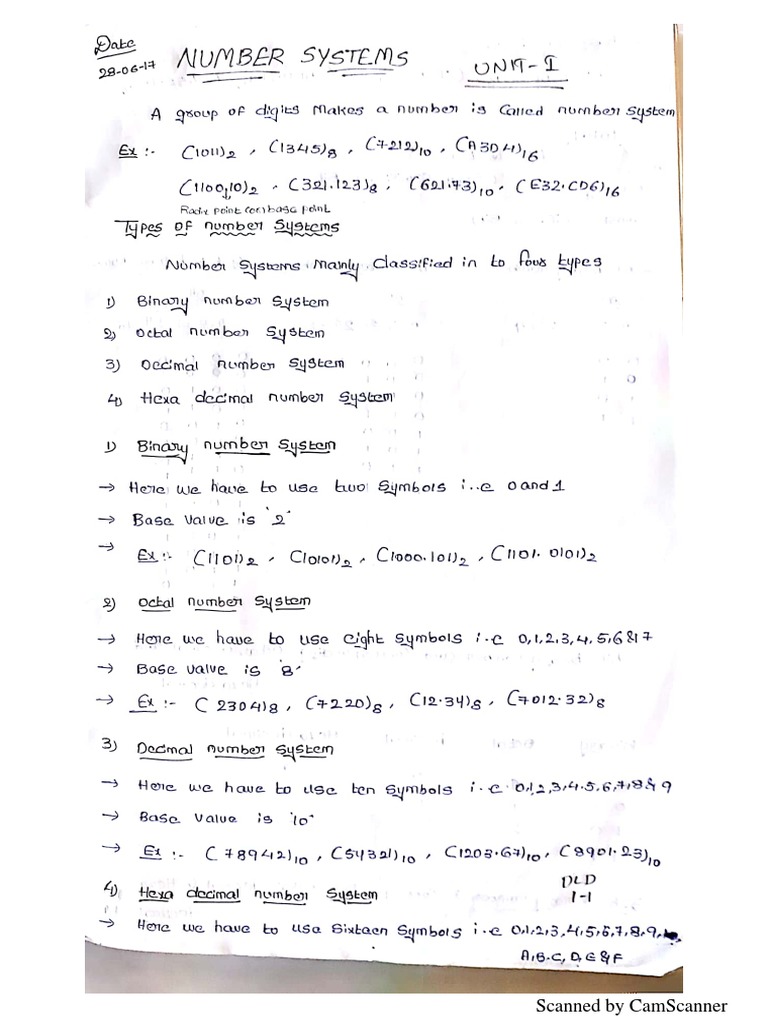 Date
28-06-17
NUMBER SYSTEMS
UNIT-I
A group of digits makes a number is called number system
Ex :- (1011)2 , (1345)8 , (7212)10 , (A3D4)16
(1100.10)2 , (321.123)8 , (621.73)10 , (E32.CD6)16
Radix point (or) base point
Types of number systems
Number systems mainly classified in to four types
1) Binary number system
2) Octal number system
3) Decimal number system
4) Hexa decimal number system
1) Binary number system
→ Here we have to use two symbols i..e 0 and 1
→ Base value is '2'
→ Ex :- (1101)2 , (10101)2 , (1000.101)2 , (1101.0101)2
2) Octal number system
→ Here we have to use eight symbols i.e 0,1,2,3,4,5,6&7
→ Base value is '8'
→ Ex :- (2304)8 , (7220)8 , (12.34)8 , (7012.32)8
3) Decimal number system
→ Here we have to use ten symbols i.e 0,1,2,3,4,5,6,7,8&9
→ Base value is '10'
→ Ex :- (78942)10 , (54321)10 , (1203.67)10 , (8901.23)10
DLD
1-1
4) Hexa decimal number system
→ Here we have to use sixteen symbols i.e 0,1,2,3,4,5,6,7,8,9,
A,B,C,D,E&F
Scanned by CamScanner